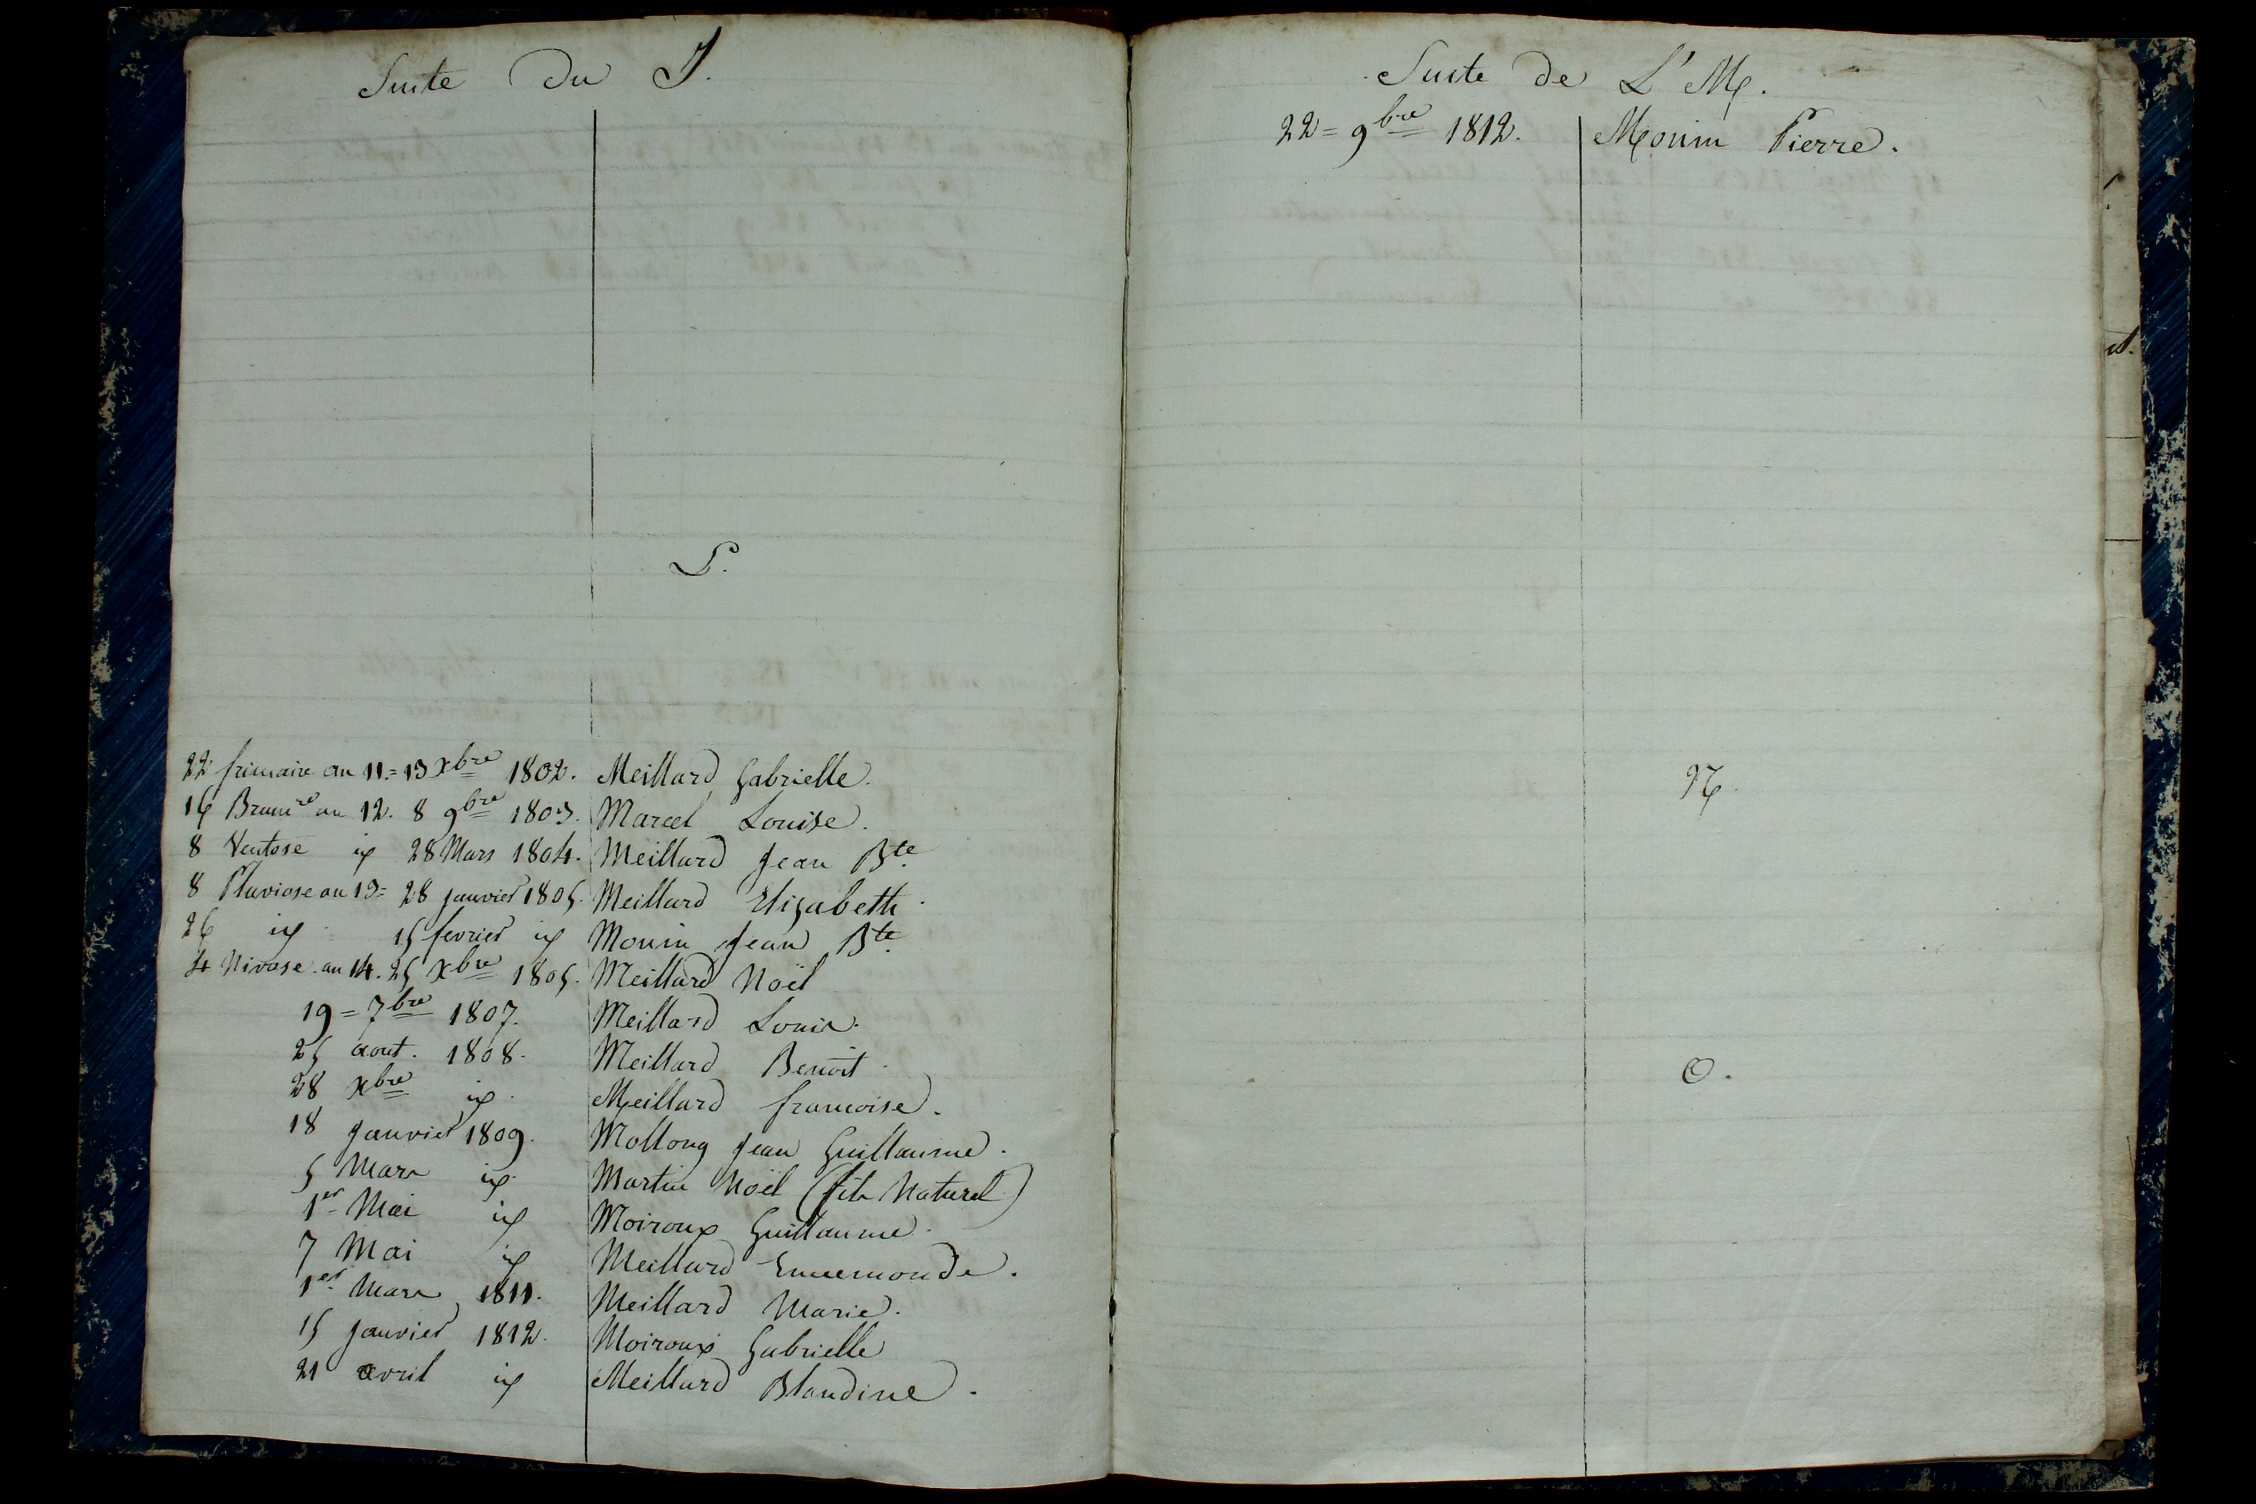 Suite Du J.
L.
22 frimaire an 11.= 13 Xbre 1802. Meillard Gabrielle.
16 Brumre an 12. 8 9bre 1803. Marcel Louise.
8 Ventose id 28 Mars 1804. Meillard Jean Bte
8 Pluviose an 13= 28 janvier 1805. Meillard Elizabeth.
26 id 15 fevrier id Monin Jean Bte
4 Nivose an 14. 25 Xbre 1805. Meillard Noël
19 = 7bre 1807. Meillard Louis.
25 aout. 1808. Meillard Benoit.
28 Xbre id. Meillard francoise.
18 Janvier 1809. Mollong Jean Guillaume.
5 Mars id. Martin Noël (fils Naturel)
1er Mai id Moiroux Guillaume.
7 Mai id Meillard Ennemonde.
1er Mars 1811. Meillard Marie.
15 Janvier 1812. Moiroux Gabrielle
21 avril id Meillard Blandine.
Suite de L'M.
22 = 9bre 1812. Monin Pierre.
N.
O.